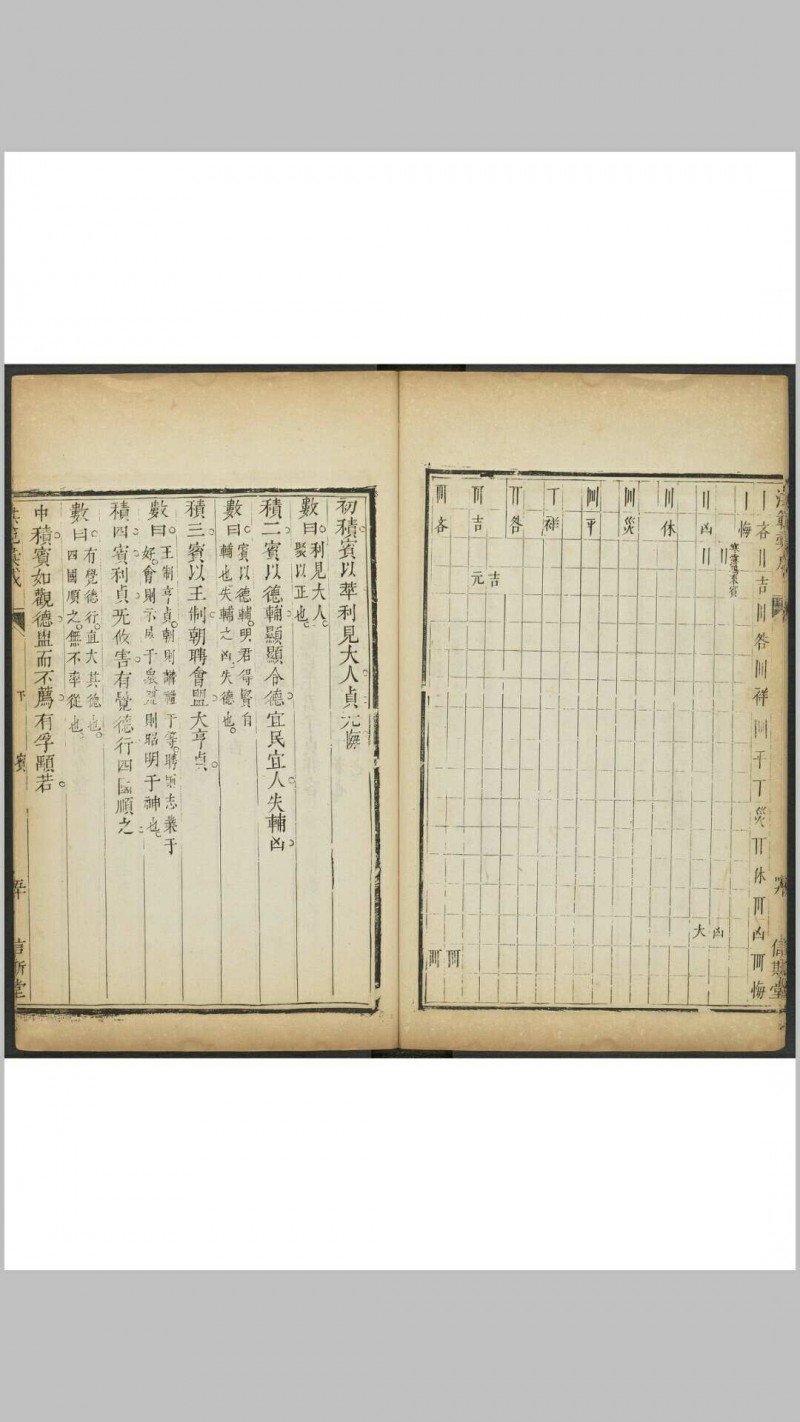 吝吉咎祥平災休凶悔
悔
凶
寒露鴻來賓
休
災
平
祥
咎
吉
吝
大凶
元吉
信斯堂
初積賓以萃利見大人貞元悔
數曰利見大人
聚以正也
積二賓以德輔顯顯令德宜民宜人失輔凶
數曰賓以德輔明君得賢自
輔也失輔之凶失德也
積三賓以王制朝聘會盟大亨貞
數曰王制亨貞朝則講禮于等聘則志業于
好會則示威于眾盟則昭明于神也
積四賓利貞无攸害有覺德行四國順之
數曰有覺德行直大其德也
四國順之無不率從也
中積賓如觀德盥而不薦有孚顒若
下 賓
信斯堂